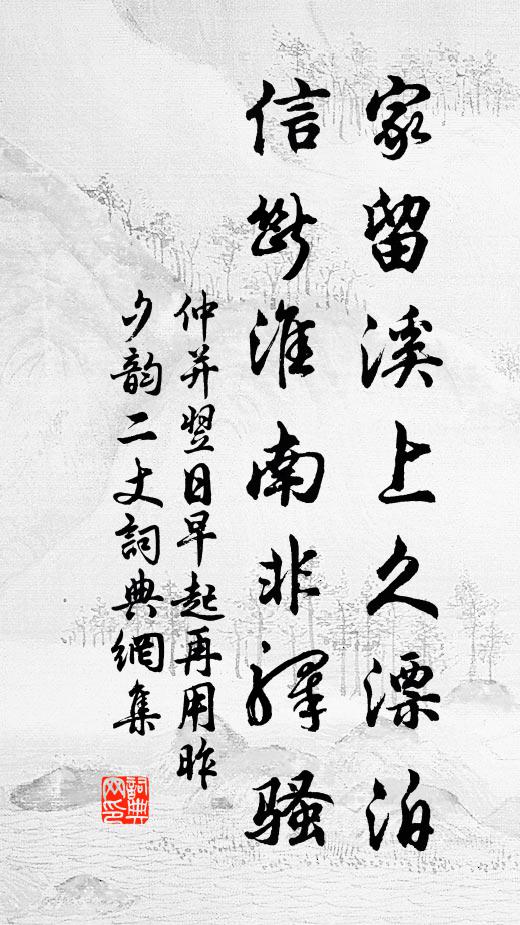 家留溪上久漂泊
信断淮南非驿骚
仲并翌日早起再用昨
夕韵二丈詞典網集
詞典網印